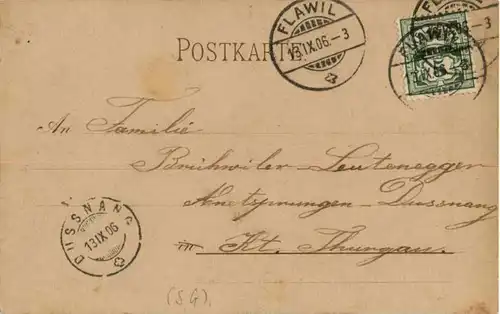 FLAWIL
13.IX.06.-3
POSTKARTE
FLAWIL
13.IX.06
5
An Familie
Brühwiler-Leutenegger
Dussnang
in Kt. Thurgau.
DUSSNANG
13 IX 06
(S G).